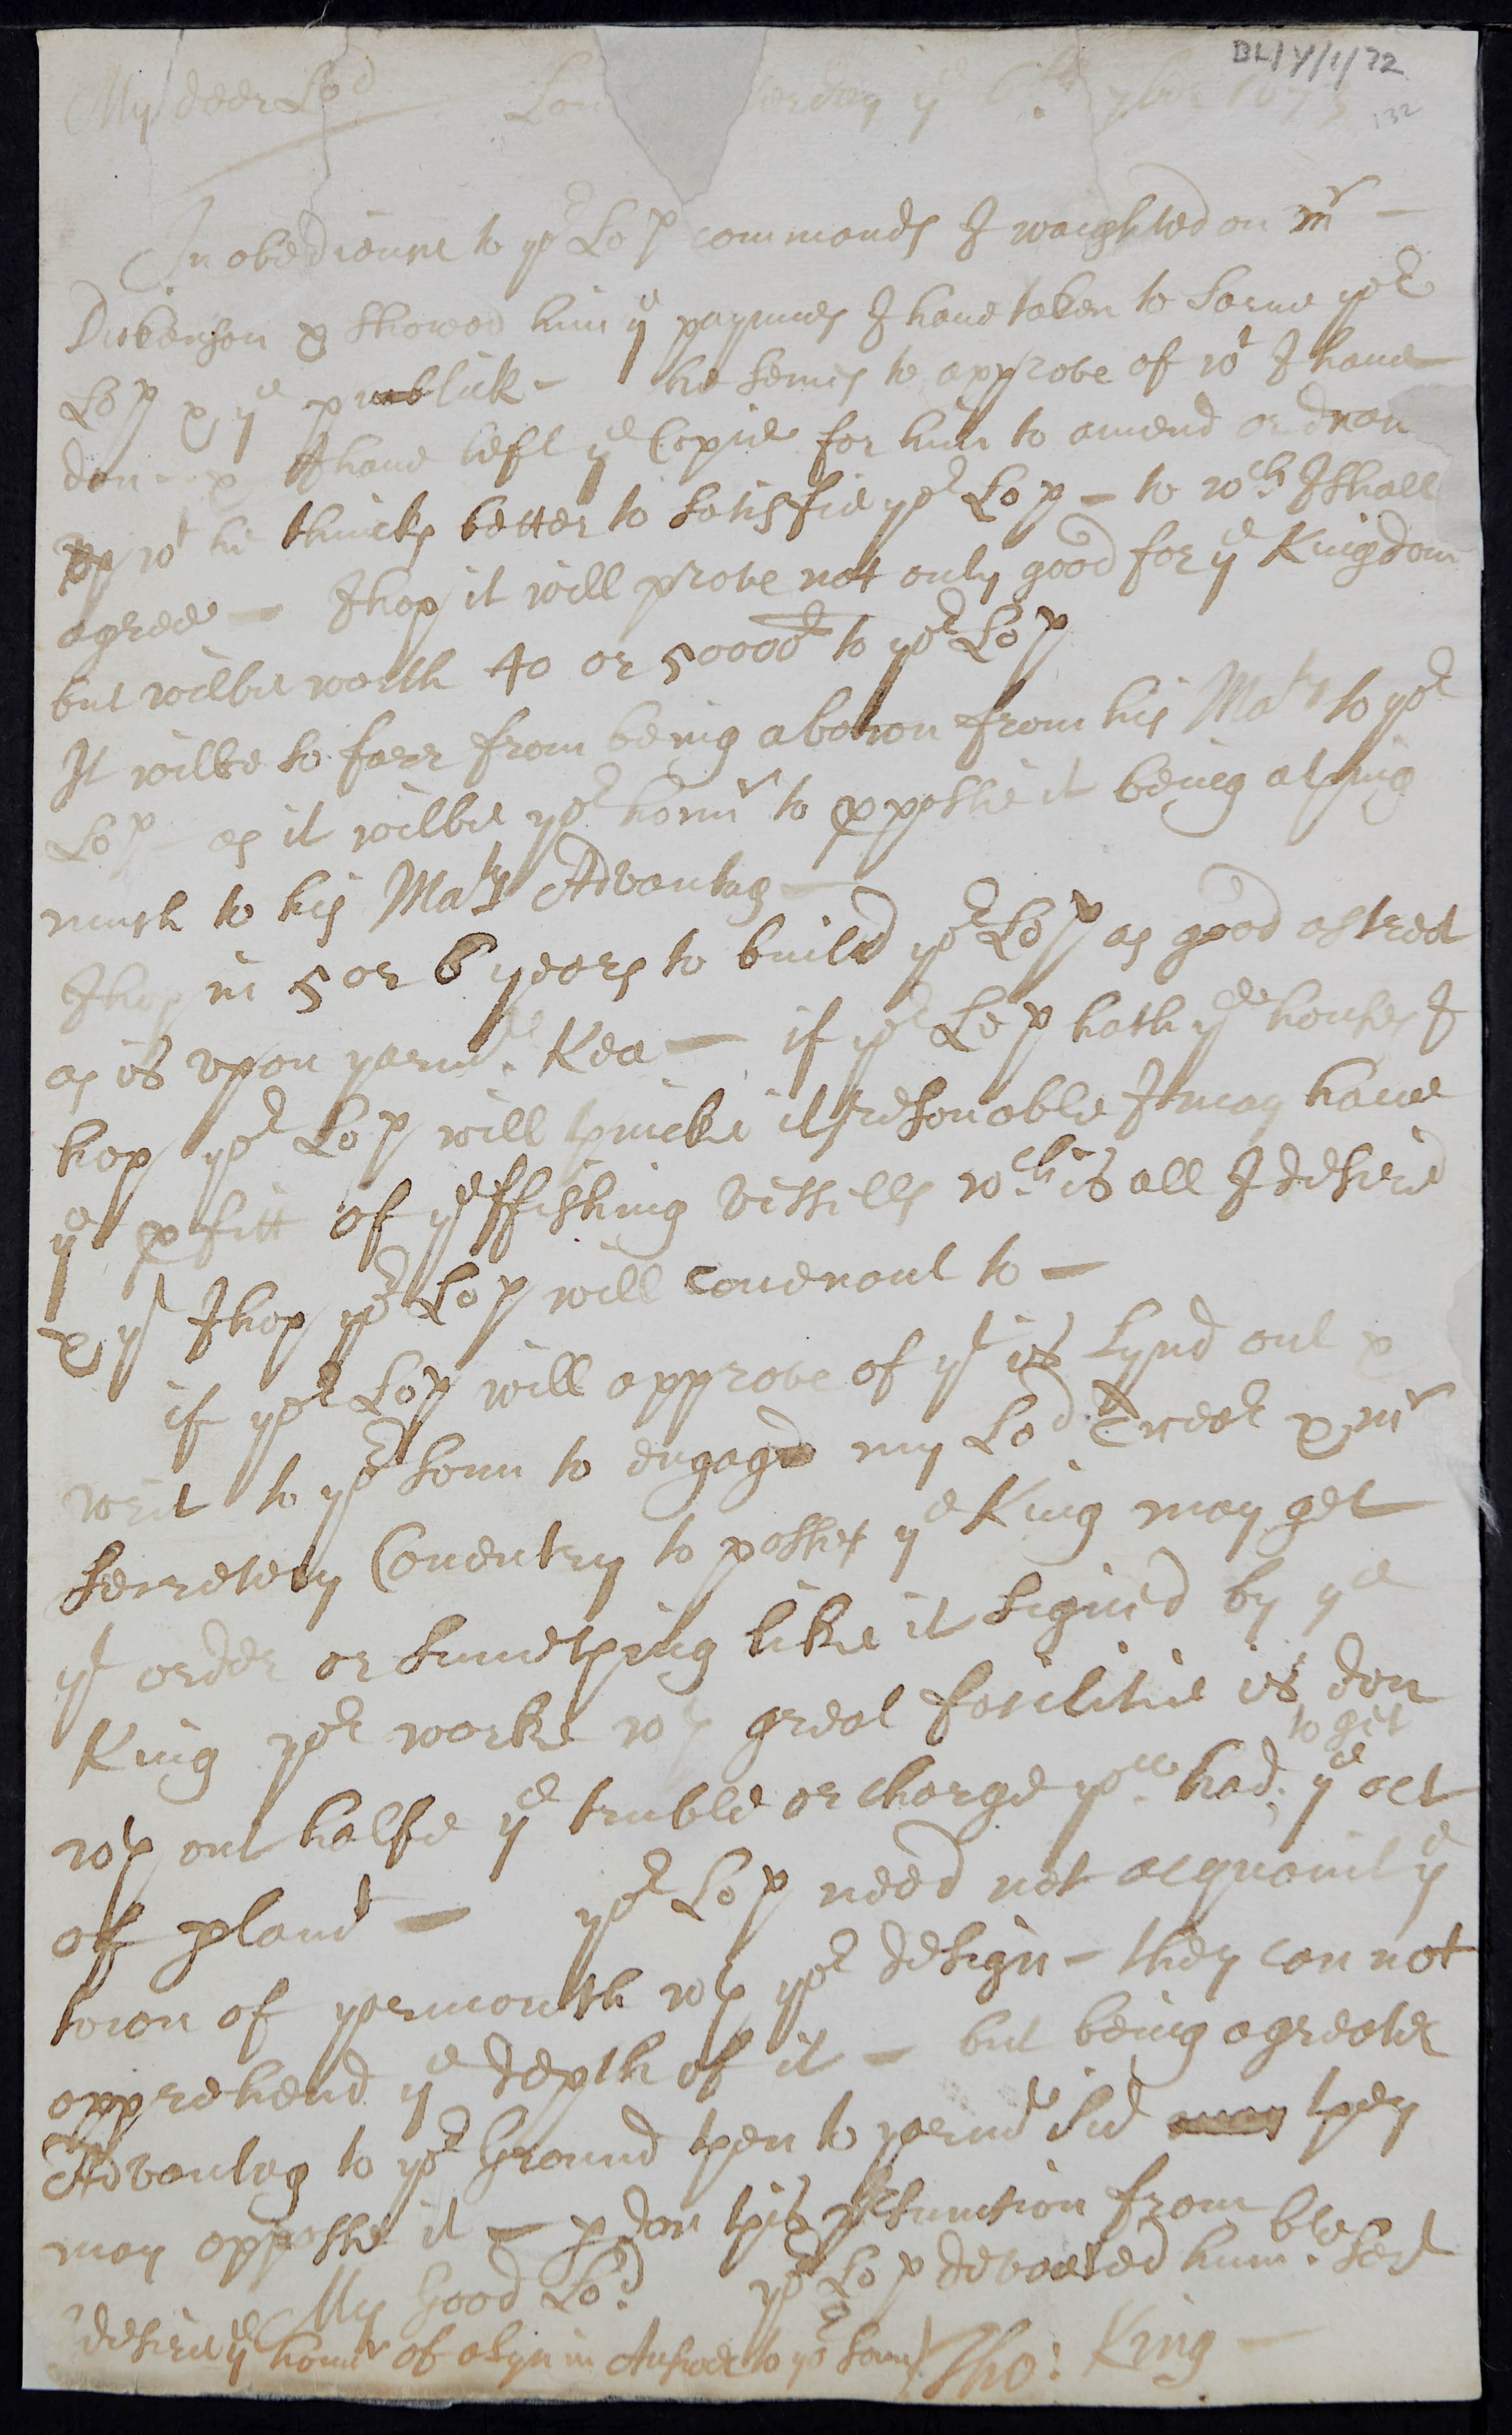 BL/Y/1/72
132
My deer Lod Lon erday ye 6th 7ber 1675
In obedienne to yor Lop commands I waighted on mr
Dickenson & showed him ye paymnes I have taken to sarue yor
Lop & ye publick - he semes to approve of wt I have
don - & I have left ye Copie for him to amend or draw
up wt he thincks better to satisfie yor Lop - to wch I shall
agree - I hop it will prove not only good for ye Kingdom
but wilbe worth 40 or 50000d to yor Lop
It wilbe so farr from being a bowon from his Maty to yor
Lop - as it wilbe yor honnr to ppposse it being a thing
much to his Matys Advantag
I hop in 5 or 6 years to build yor Lop as good a street
as is upon yarmo Kea - if yor Lop hath ye houses I
hop yor Lop will thincke it resonable I may have
ye pfitt of ye ffishing vissills wch is all I desire
& yt I hop yor Lop will couenant to -
if yor Lop will approve of yt is Lynd out &
writ to yor sonn to engage my Lod Treasr & mr
Secretery Couentry to posses ye King may get
yt order or sumething like it signed by ye
King yor worke wth great facilitie is don
wth out halfe ye truble or charge you had to git ye act
of pland - yor Lop need not acquaint ye
town of yermouth wth yor design - they can not
apprehend ye depth of it - but being a greater
Advantag to yor Ground then to yarmo sid they
may opposse it - pdon this psumsion from
My Good Lod yor Lops devooted humble Sert
desire ye honr of a Lyn in Answer to yor sonn Tho: King